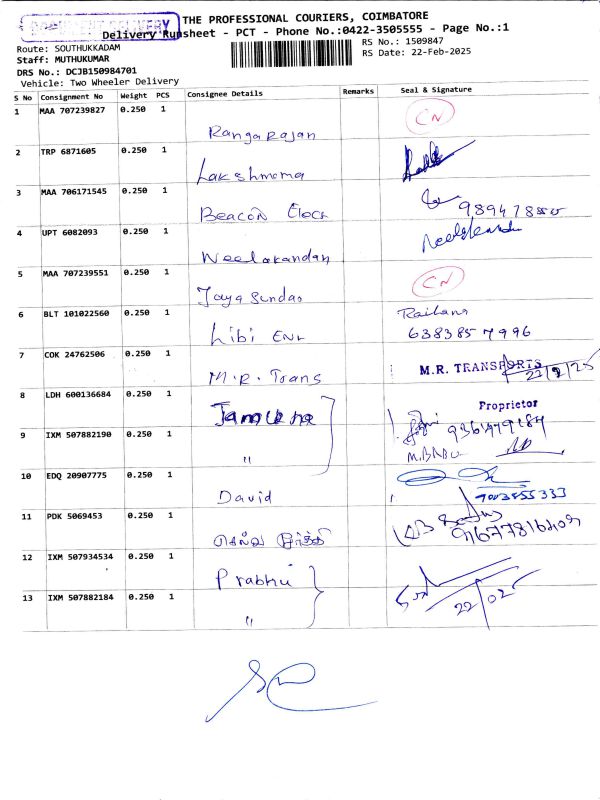 THE PROFESSIONAL COURIERS, COIMBATORE
Delivery Runsheet - PCT - Phone No.:0422-3505555 - Page No.:1
Route: SOUTHUKKADAM
RS No.: 1509847
Staff: MUTHUKUMAR
RS Date: 22-Feb-2025
DRS No.: DCJB150984701
Vehicle: Two Wheeler Delivery
S No Consignment No Weight PCS Consignee Details Remarks Seal & Signature
1 MAA 707239827 0.250 1 Rangarajan CN
2 TRP 6871605 0.250 1 Lakshmoma
3 MAA 706171545 0.250 1 Beacon
4 UPT 6082093 0.250 1 Neelakandan
5 MAA 707239551 0.250 1 Jaya Sundar CN
6 BLT 101022560 0.250 1 Libi
6383857996
7 COK 24762506 0.250 1 M.R. Trans M.R. TRANSPORTS 22/2/25
Proprietor
8 LDH 600136684 0.250 1
9 IXM 507882190 0.250 1 " M.BABU
10 EDQ 20907775 0.250 1 David
11 PDK 5069453 0.250 1
12 IXM 507934534 0.250 1 Prabhu
13 IXM 507882184 0.250 1 " 22/02